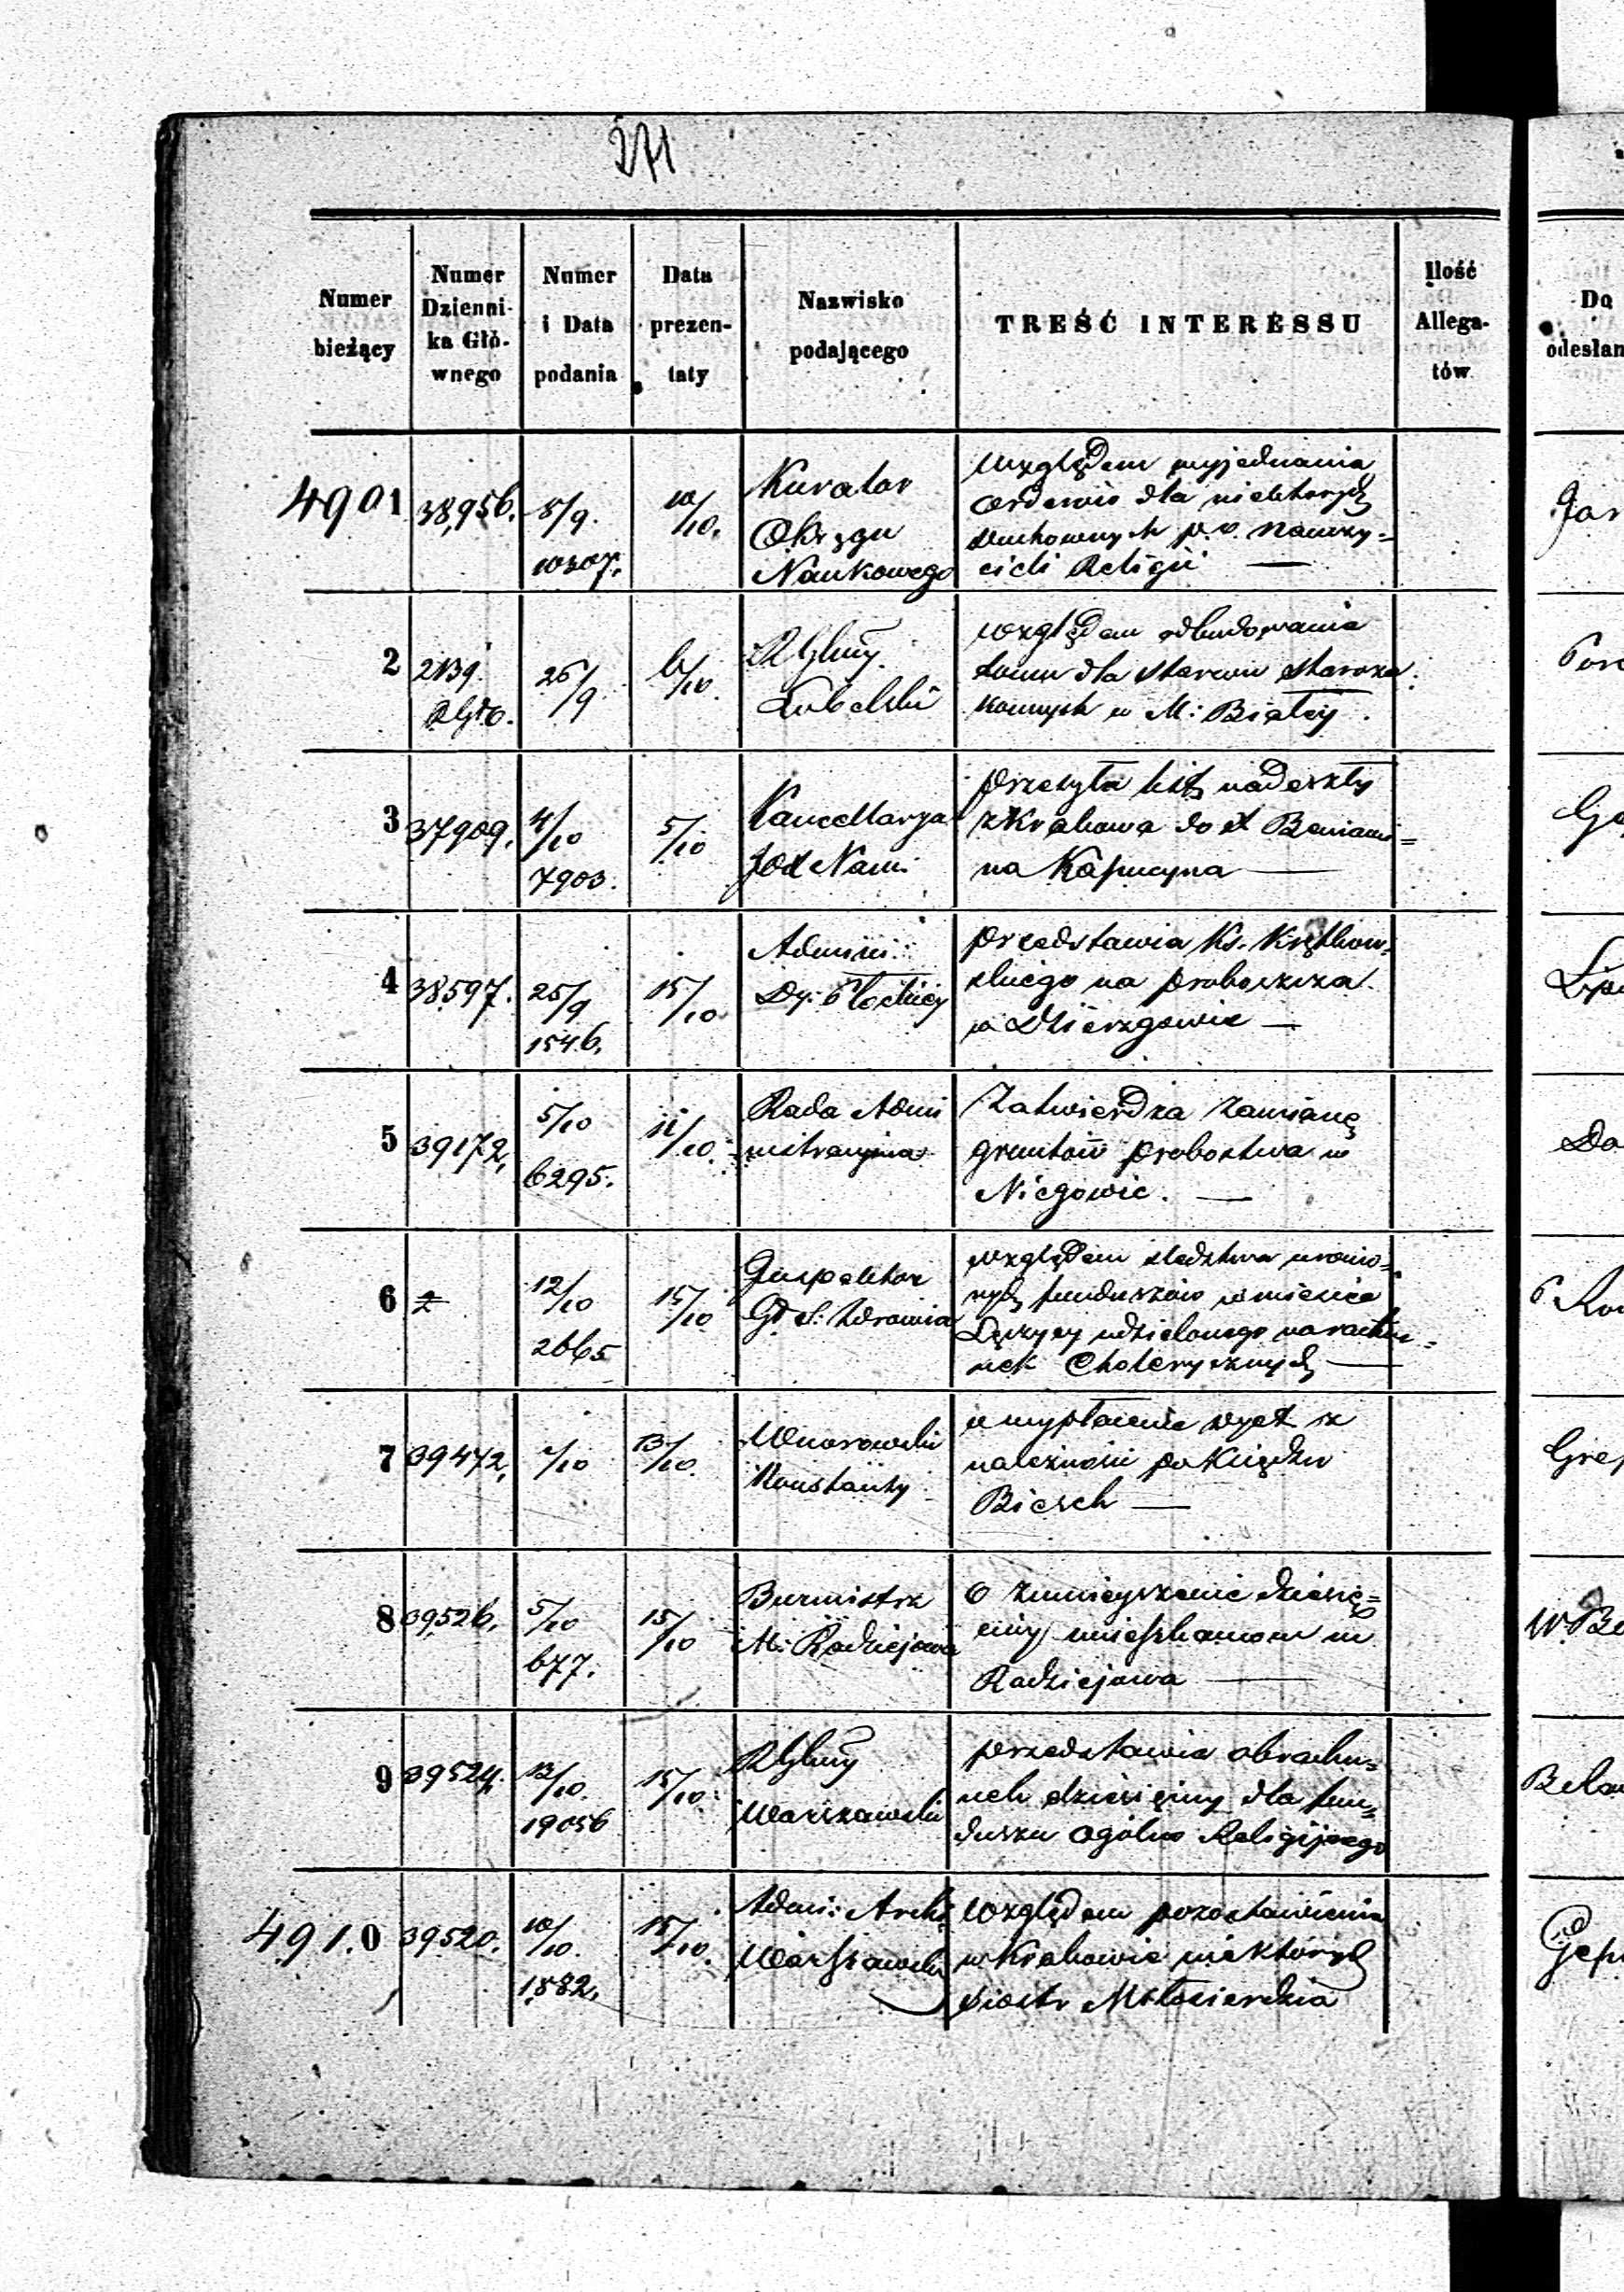 271
Numer bieżący
Numer Dzienni- ka Głó- wnego
Numer i Data podania
Data prezen- taty
Nazwisko podającego
TREŚĆ INTERESSU
Ilość Allega- tów
Do odesłan
4901 38,956. 8/9. 10307. 10/10.
Kurator
Okręgu
Naukowego
względem wyjednania
orderów dla niektorych
duchownych p.o. nauczy=
cieli Religii —
Jar
2 2139. 25/9 6/10.
Lubelski
względem odbudowania
domu dla starców staroza
konnych w M: Białey.
3 37909. 4/10 7903. 5/10
Kancellarya
JO X Nam:
przesyła list nadeszły
z Krakowa do X Beniami=
na Kapucyna —
4 38597. 25/9 1546. 15/10
Admini:
Dy: Płockiey
przedstawia Ks. Krętkow=
skiego na proboszcza
w Dzierzgowie —
5 39172. 5/10 6295. 11/10.
Rada Admi
nistracyjna
Zatwierdza zamianę
gruntów probostwa w
Niegowic. —
Do
6 12/10 2665 15/10
Inspektor
Gł S: Zdrowia
względem śledztwa
funduszów w mieście
Łęczycy udzielonego na rachu=
nek Cholerycznych —
7 39472. 13/10.
Konstanty
o wypłacenie
należności po Księdzu
Biesch —
8 39526. 5/10 677. 15/10
Burmistrz
M: Radziejowa
O zmnieyszenie dziesię=
ciny mieszkancom m
Radziejowa —
9 39524. 13/10. 19056 15/10.
Warszawski
przedstawia obrachu=
nek dziesięciny dla fun=
duszu ogólno Religijnego
4910 39520. 10/10. 1882. 15/10.
Admi: Archi
Warszawski
Względem pozostawienia
w Krakowie niektórych
siostr Miłosierdzia